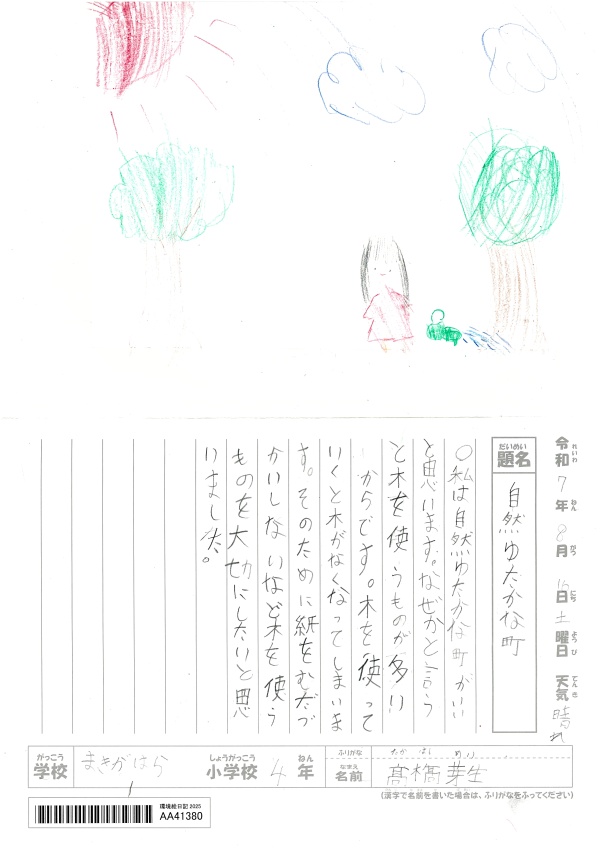 令和7年8月16日土曜日 天気 晴れ
れいわ ねん がつ にち ようび てんき
だいめい
題名 自然ゆたかな町
○私は自然ゆたかな町がいい
と思います。なぜかと言う
と木を使うものが多い
からです。木を使って
いくと木がなくなってしまいま
す。そのために紙をむだづ
かいしないなど木を使う
ものを大切にしたいと思
いました。
がっこう しょうがっこう ねん ふりがな たかはし めい
学校 まきがはら 小学校 4年 なまえ 名前 髙橋芽生
(漢字で名前を書いた場合は、ふりがなをふってください)
環境絵日記 2025
AA41380